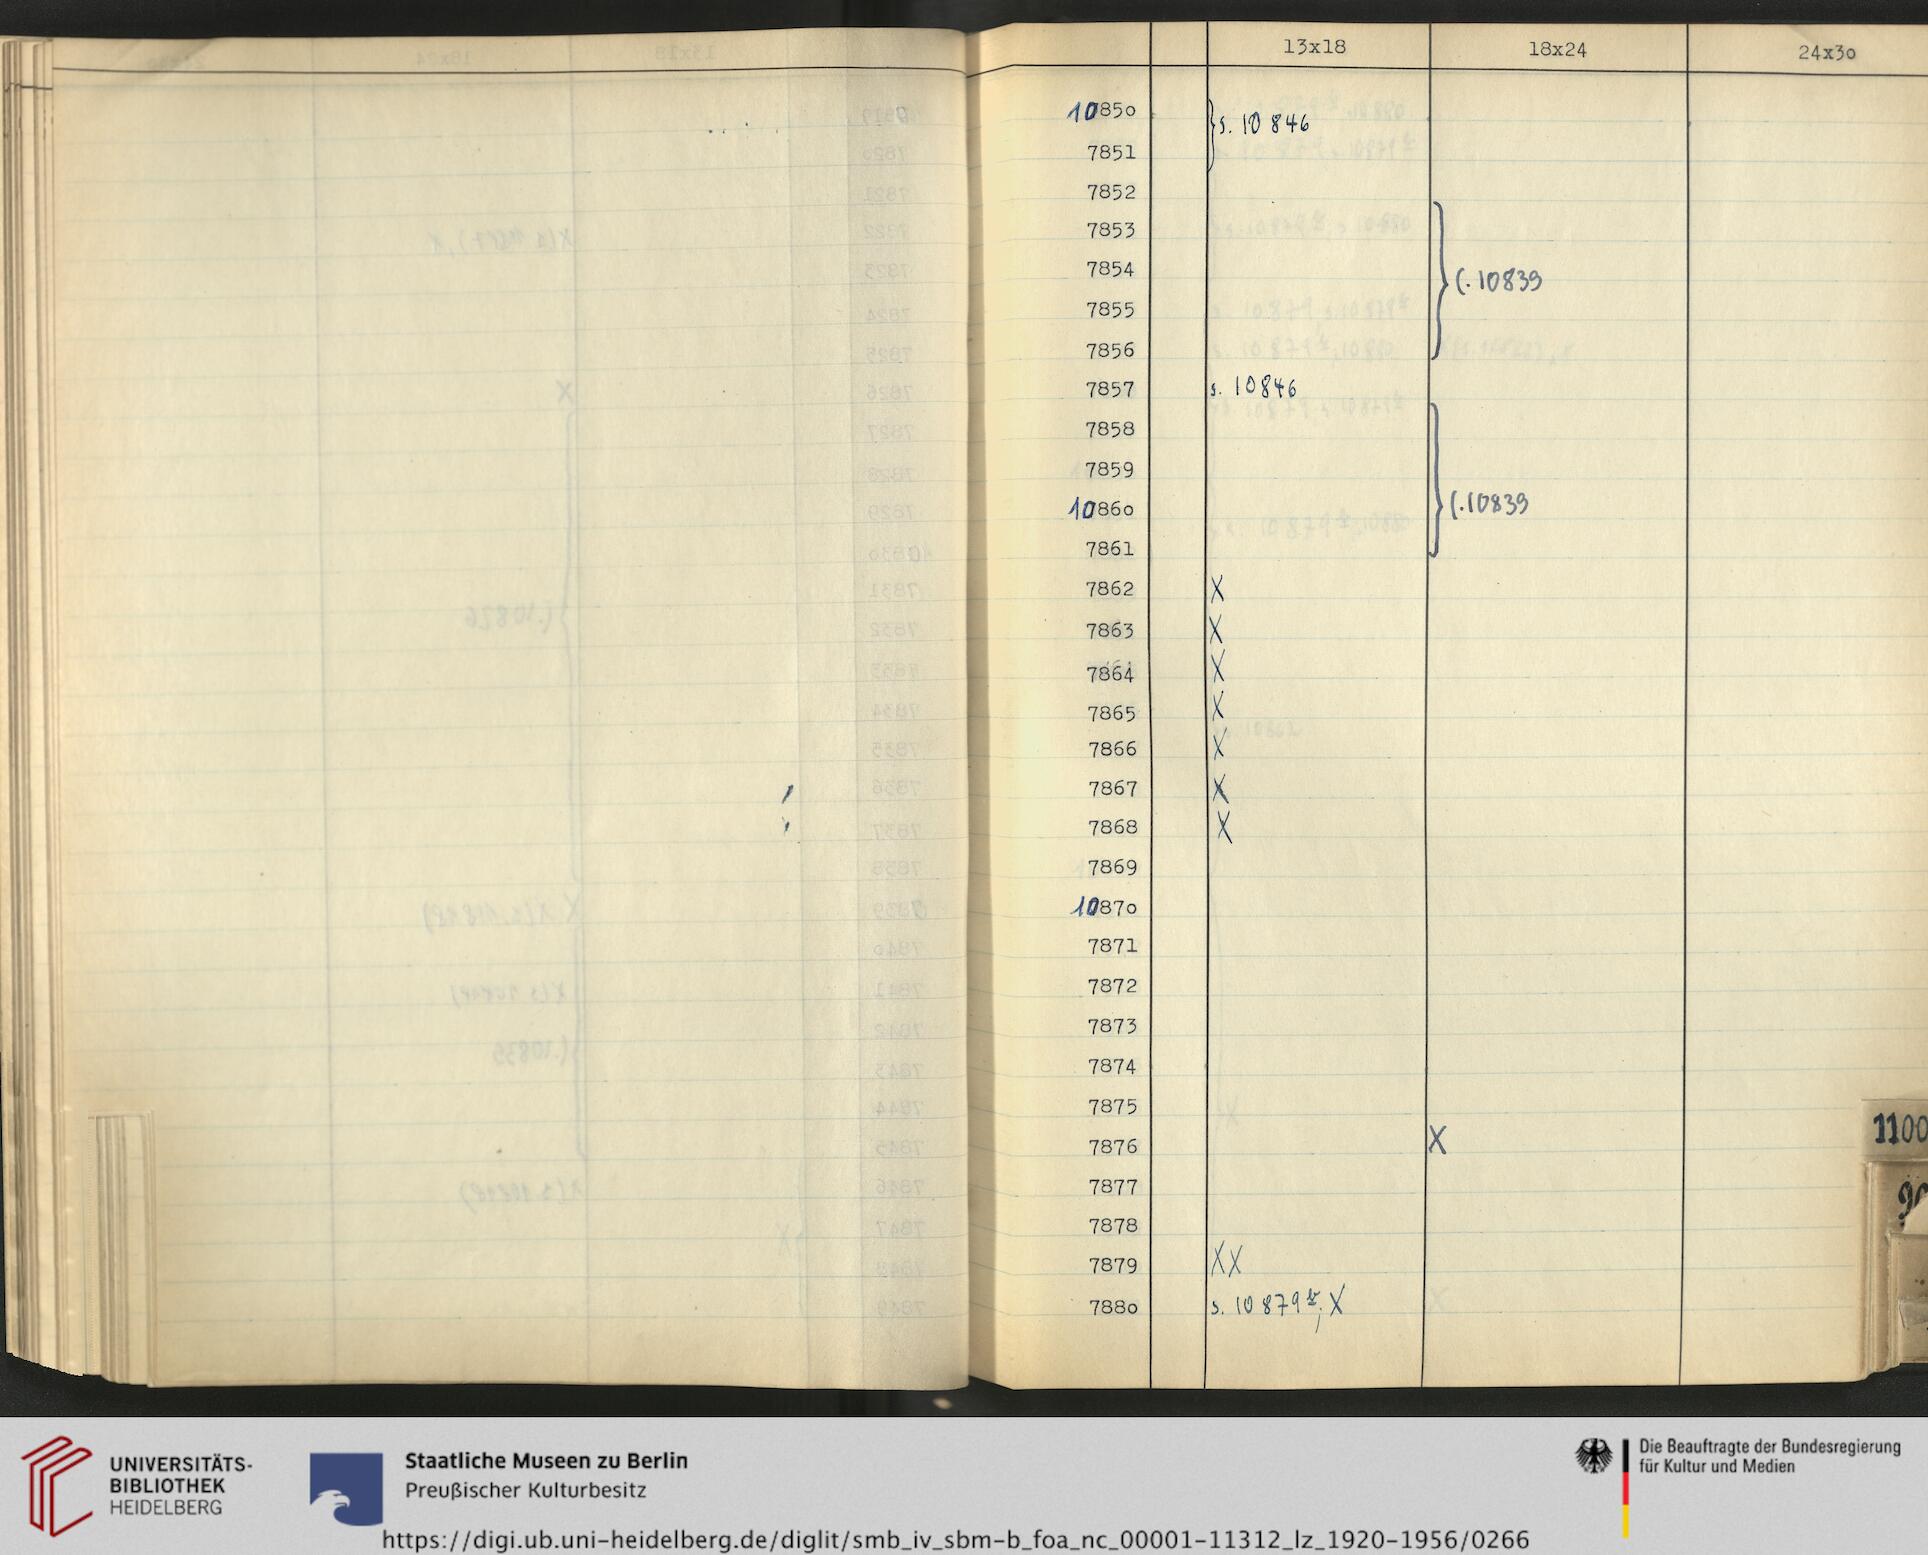 13x18 18x24 24x30
10850 } s. 10 846
7851
7852
7853
7854 } s. 10839
7855
7856
7857 s. 10846
7858
7859
10860 } s. 10839
7861
7862 X
7863 X
7864 X
7865 X
7866 X
7867 X
7868 X
7869
10870
7871
7872
7873
7874
7875
7876 X
7877
7878
7879 XX
7880 s. 10 879 ; X
1100
UNIVERSITÄTS-
BIBLIOTHEK
HEIDELBERG
Staatliche Museen zu Berlin
Preußischer Kulturbesitz
Die Beauftragte der Bundesregierung
für Kultur und Medien
https://digi.ub.uni-heidelberg.de/diglit/smb_iv_sbm-b_foa_nc_00001-11312_lz_1920-1956/0266